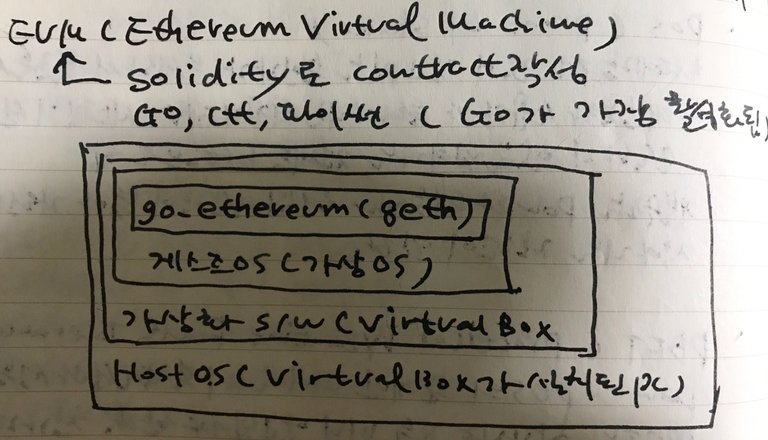 EVM (Ethereum Virtual Machine)
Solidity로 contract작성
Go, C++, 파이썬 (Go가 가장 활성화됨)
go_ethereum(geth)
게스트OS(가상OS)
가상화 S/W (Virtual Box
Host OS (Virtual Box가 설치된 PC)